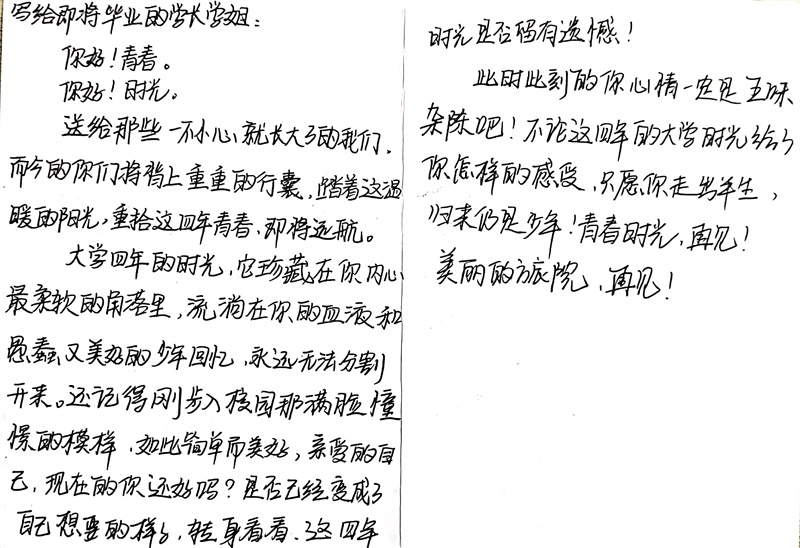 写给即将毕业的学长学姐：
你好！青春。
你好！时光。
送给那些一不小心就长大了的我们，
而今的你们将背上重重的行囊，踏着这温
暖的阳光，重拾这四年青春，即将远航。
大学四年的时光，它珍藏在你内心
最柔软的角落里，流淌在你的血液和
愚蠢又美好的少年回忆，永远无法分割
开来。还记得刚步入校园那满脸憧
憬的模样，如此简单而美好，亲爱的自
己，现在的你还好吗？是否已经变成了
自己想要的样子，转身看看，这四年
时光是否码有遗憾！
此时此刻的你心情一定是五味
杂陈吧！不论这四年的大学时光给了
你怎样的感受，只愿你走出半生，
归来仍是少年！青春时光，再见！
美丽的旅院，再见！